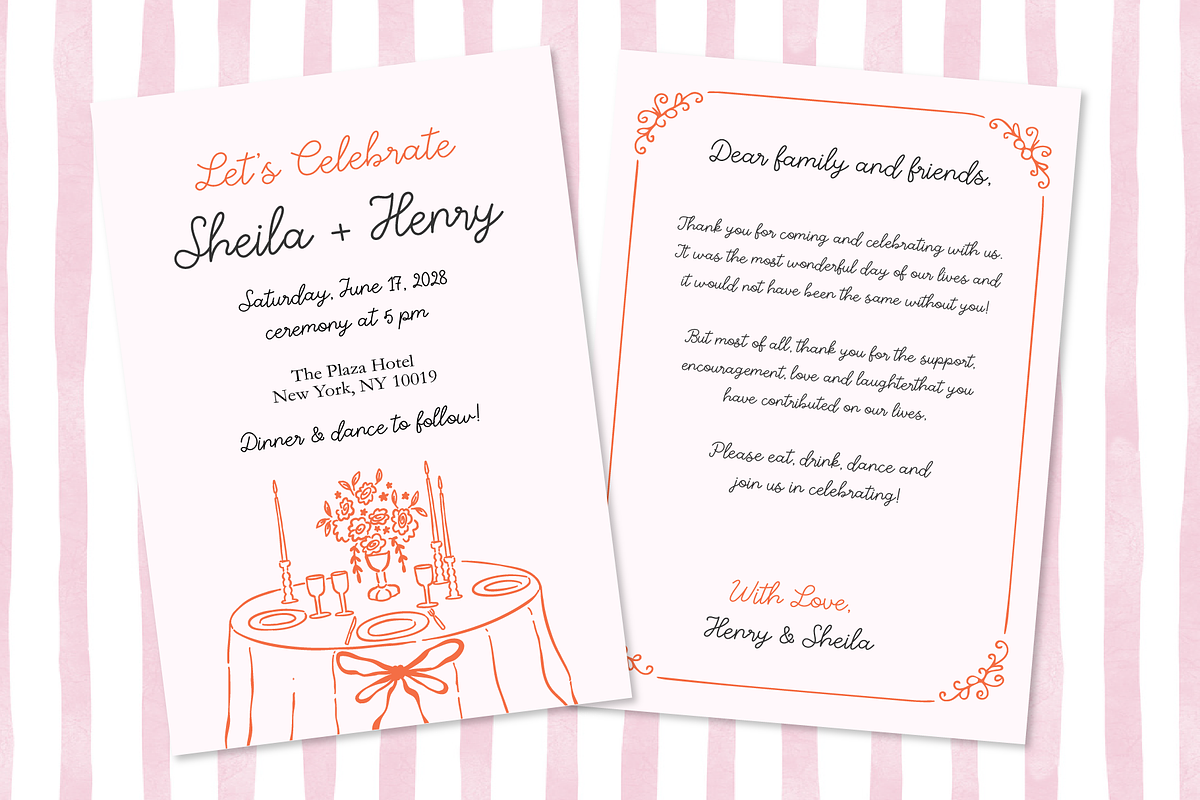 Let's Celebrate
Sheila + Henry
Saturday, June 17, 2028
ceremony at 5 pm
The Plaza Hotel
New York, NY 10019
Dinner & dance to follow!
Dear family and friends,
Thank you for coming and celebrating with us.
It was the most wonderful day of our lives and
it would not have been the same without you!
But most of all, thank you for the support,
encouragement, love and laughterthat you
have contributed on our lives.
Please eat, drink, dance and
join us in celebrating!
With Love,
Henry & Sheila